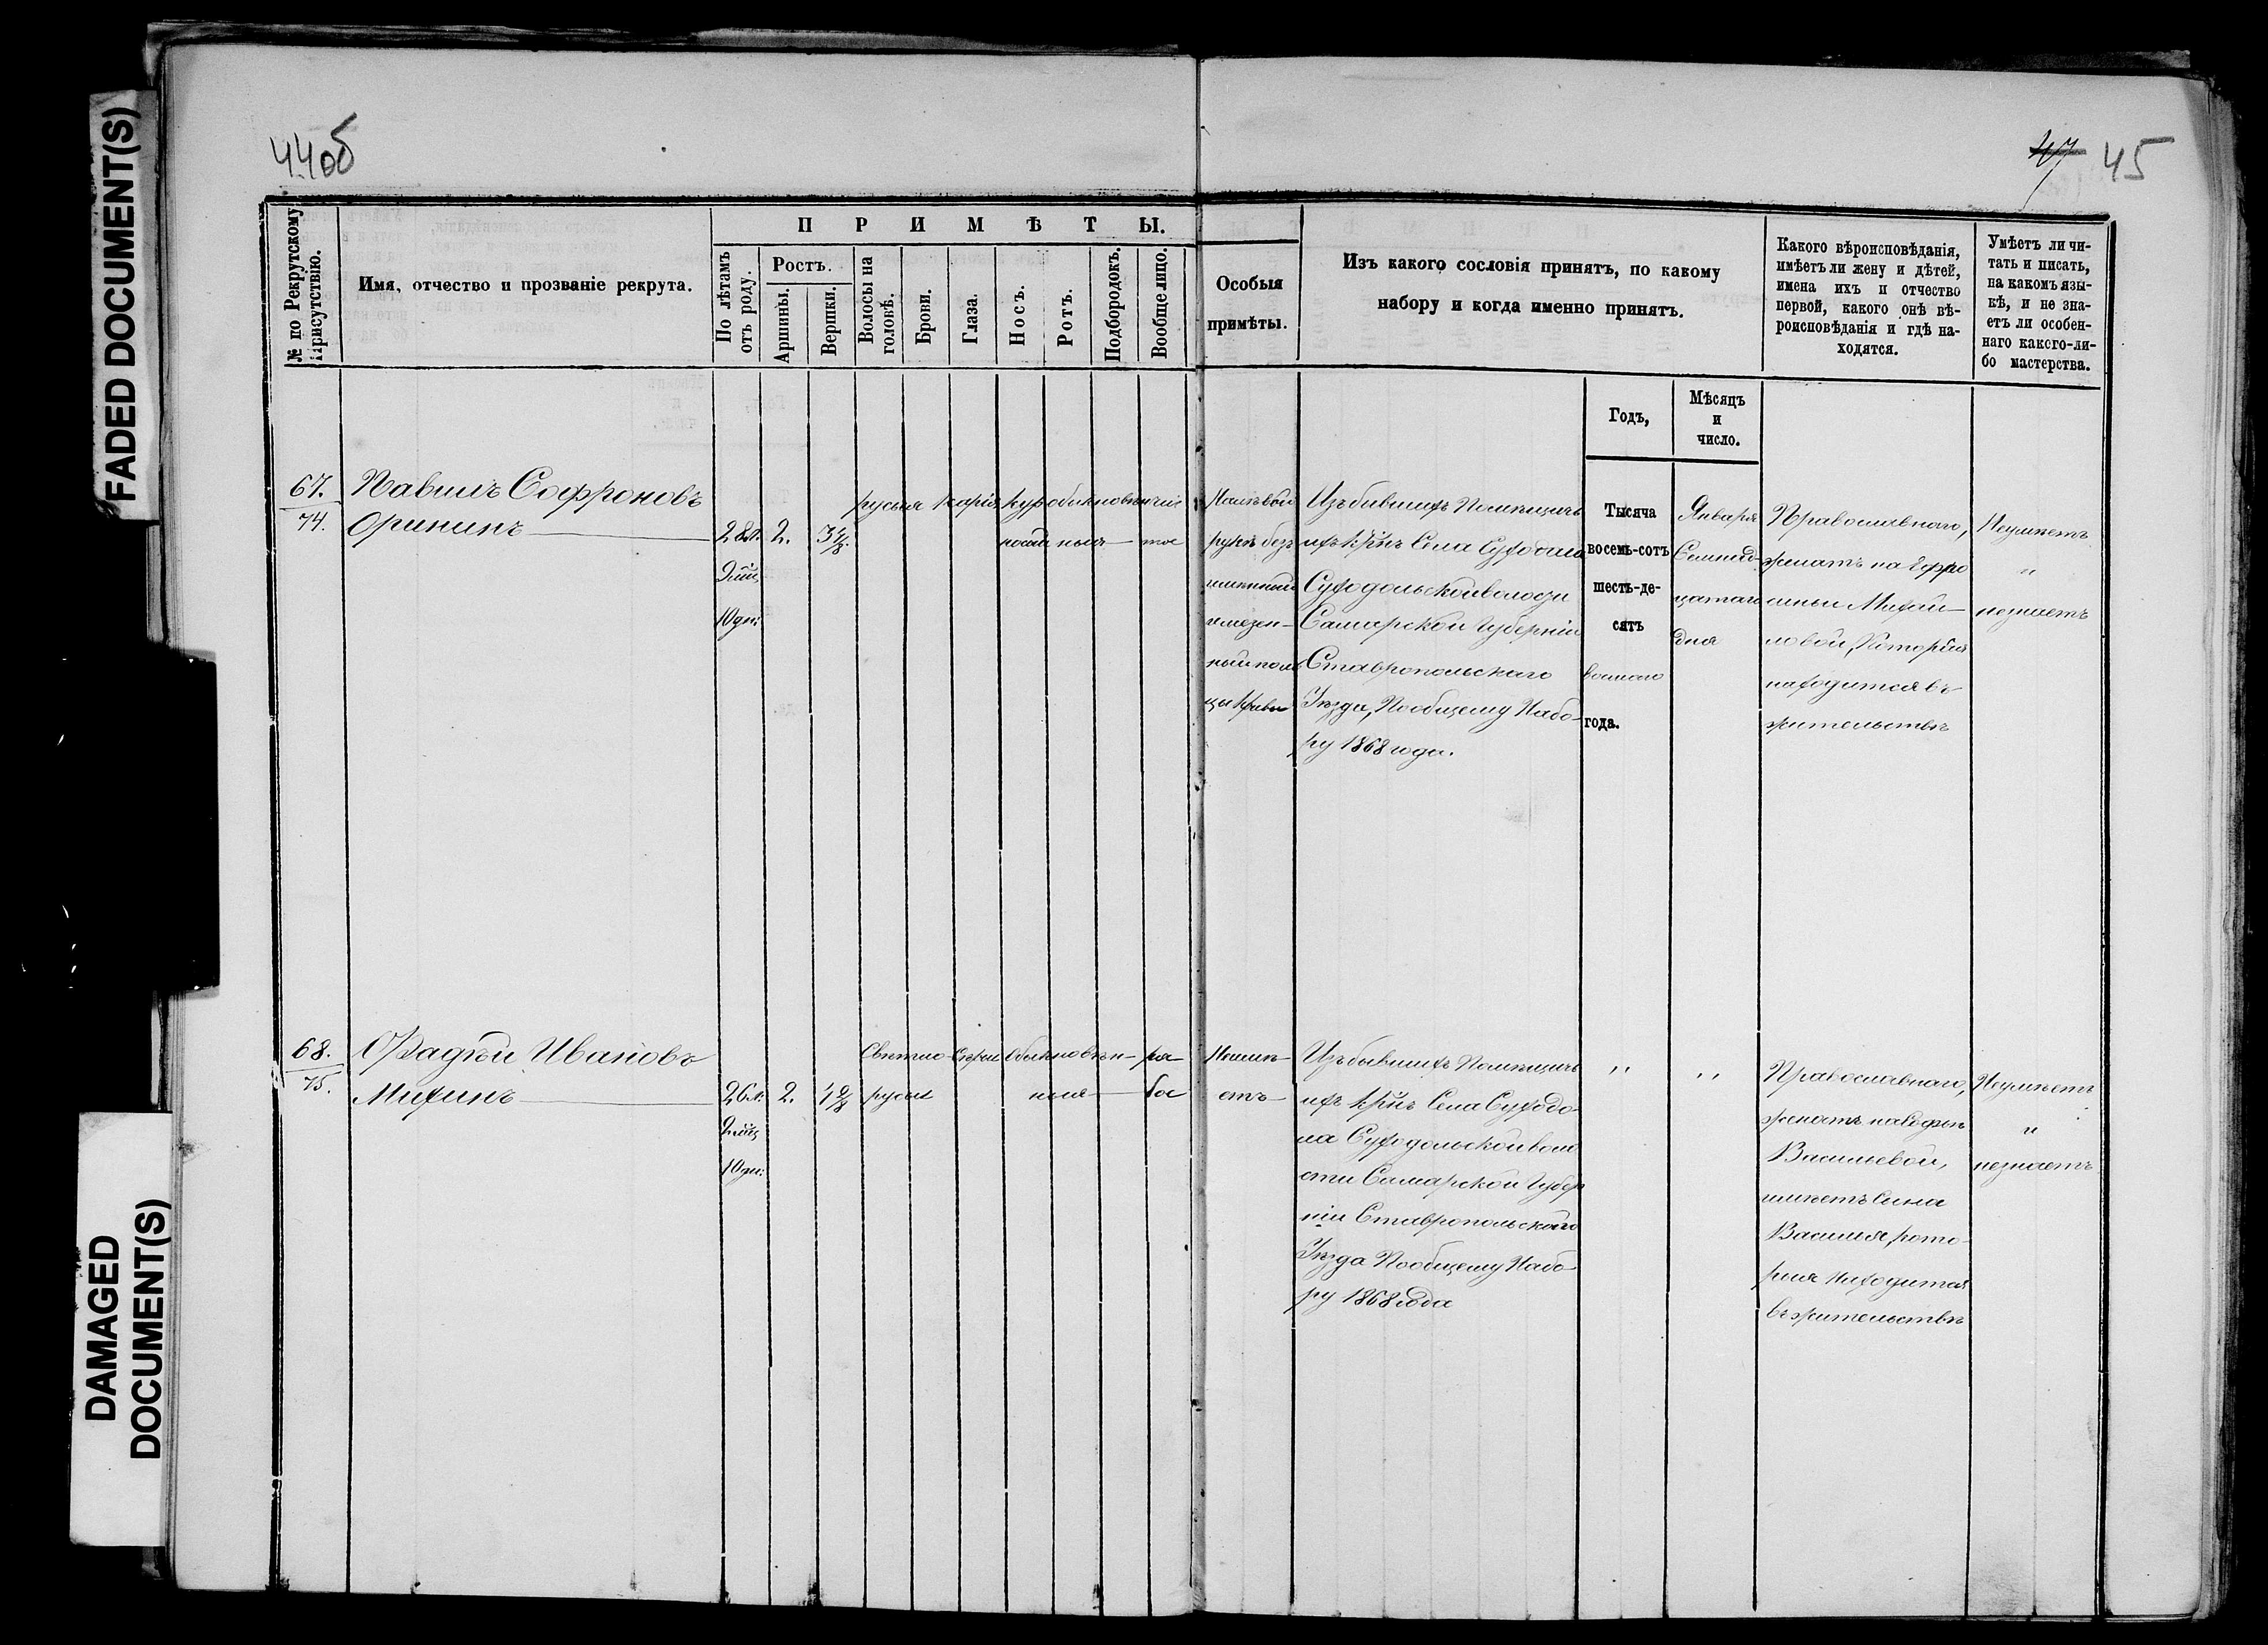 FADED DOCUMENT(S)
DAMAGED
DOCUMENT(S)
44об
47 45
№ по Рекрутскому
Присутствію.
Имя, отчество и прозваніе рекрута.
ПРИМѢТЫ.
По лѣтамъ
отъ роду.
Ростъ.
Аршины.
Вершки.
Волосы на
головѣ.
Брови.
Глаза.
Носъ.
Ротъ.
Подбородокъ.
Вообще лицо.
Особыя
примѣты.
Изъ какого сословія принятъ, по какому
набору и когда именно принятъ.
Какого вѣроисповѣданія,
имѣетъ ли жену и дѣтей,
имена ихъ и отчество
первой, какого онѣ вѣ-
роисповѣданія и гдѣ на-
ходятся.
Умѣетъ ли чи-
тать и писать,
на какомъ язы-
кѣ, и не зна-
етъ ли особен-
наго какого-ли-
бо мастерства.
Годъ,
Мѣсяцъ
и
число.
67.
74.
Павилъ Софроновъ
Орининъ
28л.
9 мц
10 дн:
2.
3 4/8.
русыя карія кур обыкновенные
носый ныя тое
На лѣвой
рукѣ безъ
имянный
и мезен-
ный паль
цы кривы
Изъ бывшихъ Помѣщичь
ихъ кр̃нъ Села Суходола
Суходольской волости
Самарской Губерніи
Ставропольскаго
Уѣзда, По общему Набо-
ру 1868 года.
Тысяча
восемь-сотъ
шесть-де-
сятъ
восмаго
года.
Января
Семнад-
цатаго
дня
Православнаго,
женатъ на Ефро
синьи Михай-
ловой, Которыя
находится въ
жительствѣ
Неумѣетъ
и
незнаетъ
68.
75.
Фадѣй Ивановъ
Михинъ
26л.
2 мц
10 дн:
2.
Свѣтло- Сѣрыя Обыкновен- ря
русыя ныя бое
Неимѣ-
етъ
Изъ бывшихъ Помѣщичь
ихъ кр̃нъ Села Суходо-
ла Суходольской воло
сти Самарской Губер
ніи Ставропольскаго
Уѣзда По общему Набо-
ру 1868 года
,,
,,
Православнаго,
женатъ на Софьѣ
Васильевой,
имѣетъ Сына
Василья, кото-
рыя находится
въ жительствѣ
Неумѣетъ
и
незнаетъ